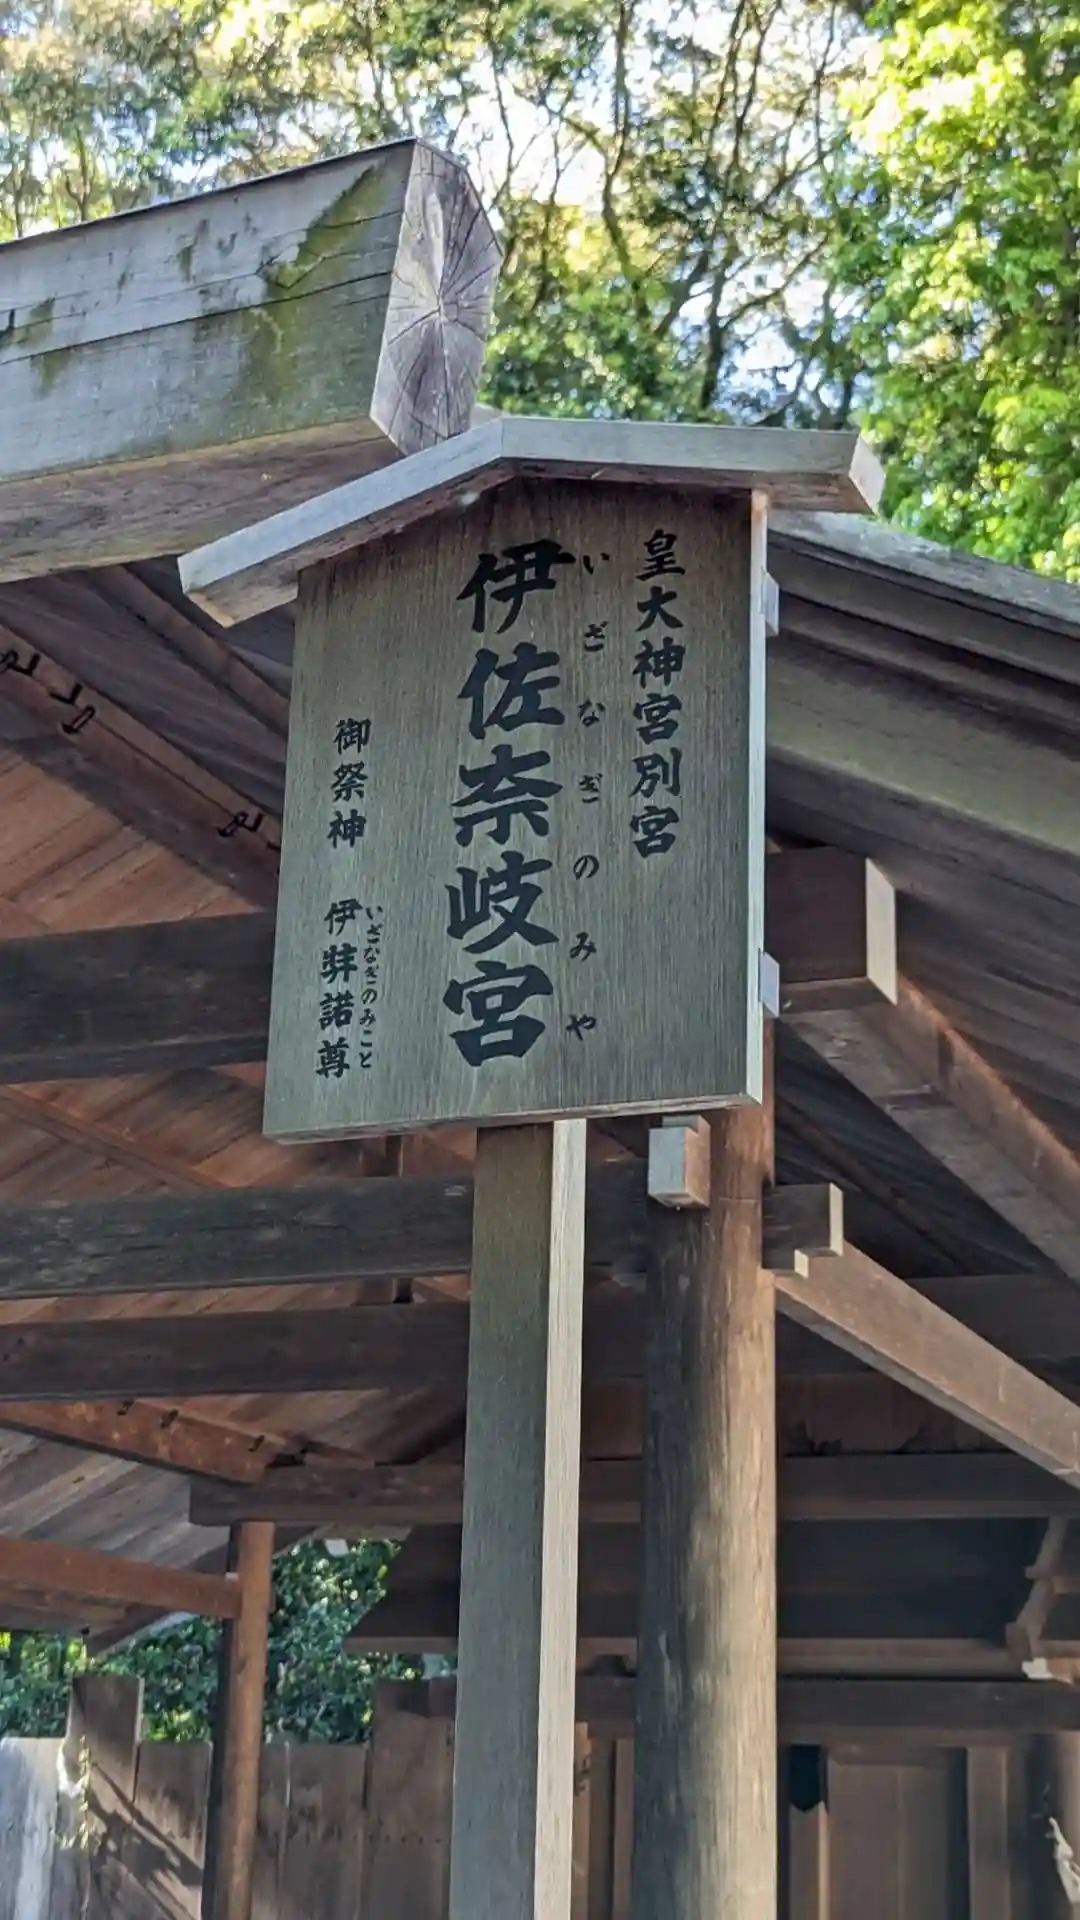 皇大神宮別宮
いざなぎのみや
伊佐奈岐宮
御祭神 伊弉諾尊
いざなぎのみこと